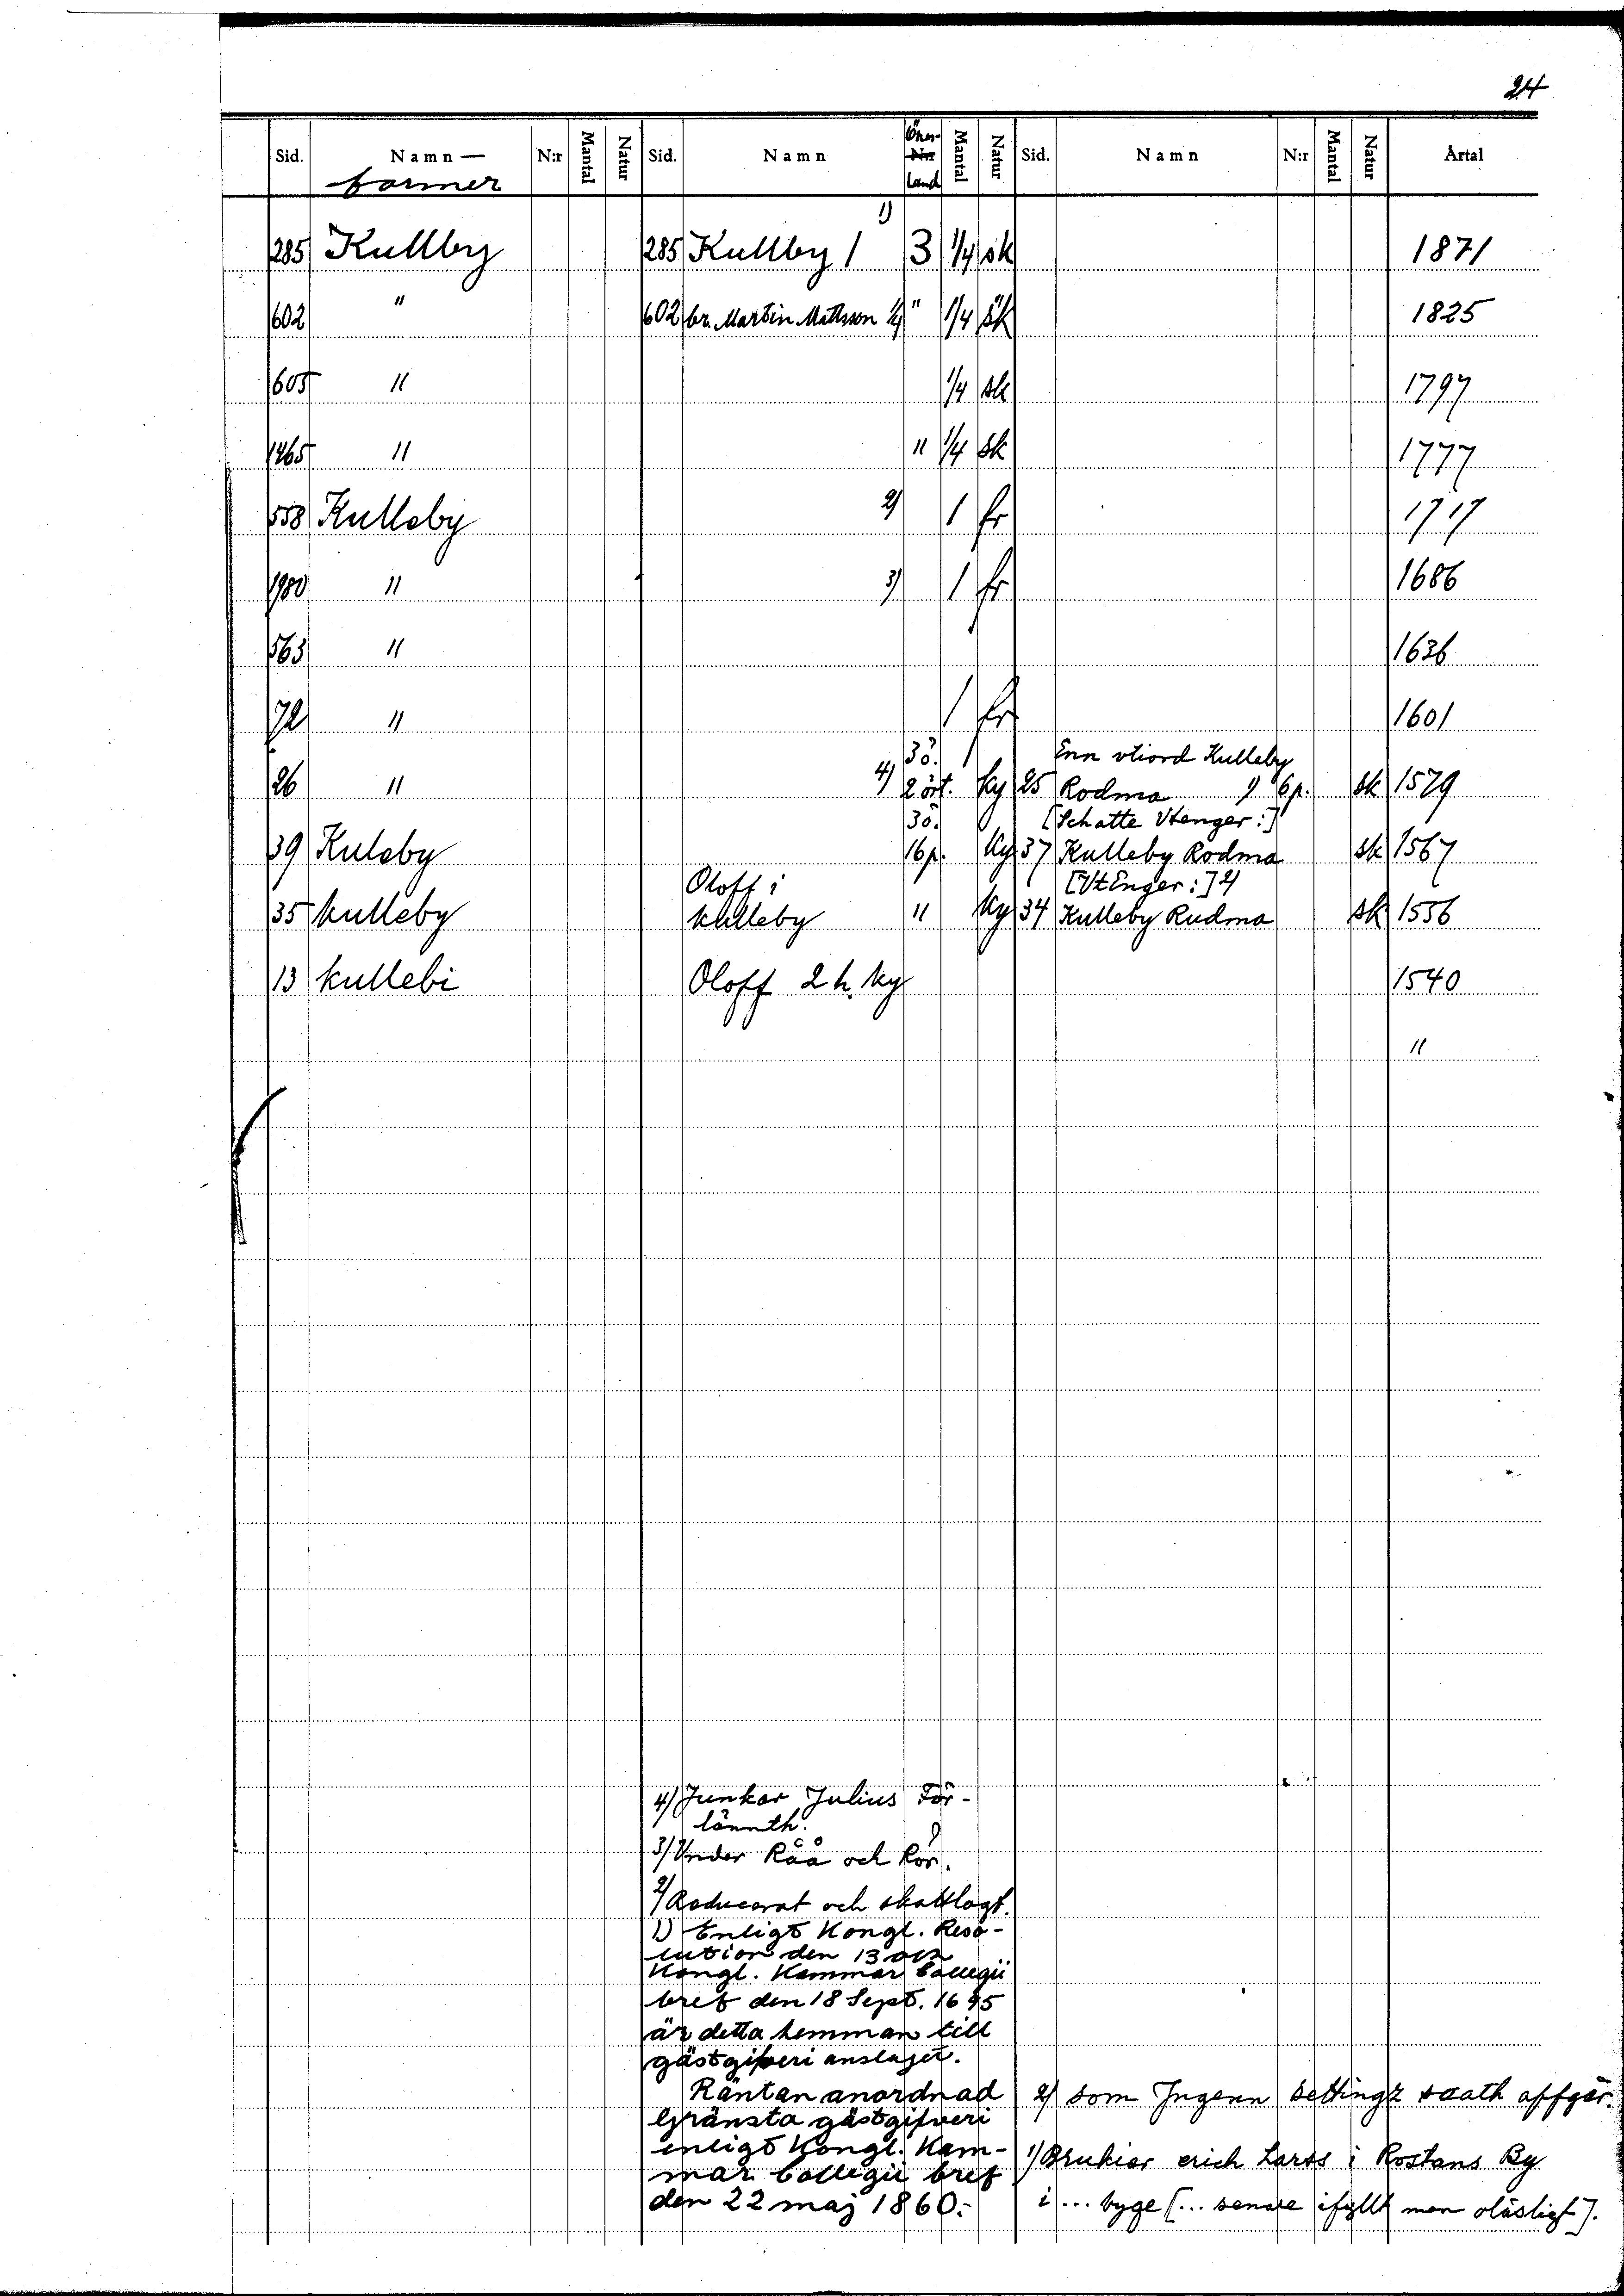 24
Sid. Namn — N:r Mantal Natur Sid. Namn Öres- N:r Mantal Natur Sid. Namn N:r Mantal Natur Årtal
former land
1)
285 Kullby 285 Kullby 1 3 1/4 sk 1871
602 " 602 br. Martin Mattsson 1/4 " 1/4 sk 1825
605 " 1/4 sk 1797
1265 " " 1/4 sk 1777
558 Kulleby 2) 1 fr 1717
1980 " 3) 1 fr 1686
563 " 1636
72 " 1 fr 1601
3ö. Enn vtiord Kulleby
26 " 4) 2 ört. ky 25 Rodma 1) 6p. sk 1579
3ö. [Schatte Vtenger:]
39 Kuleby 16p. ky 37 Kulleby Rodma sk 1567
Oloff i [VtEnger:] 2)
35 kulleby kulleby " ky 34 Kulleby Rudma sk 1556
13 kullebi Oloff 2 h. ky 1540
"
4) Junkar Julius För-
lännth.
3) Under Råå och Rör.
2) Reducerat och skattlagt.
1) Enligt Kongl. Reso-
lution den 13 och
Kongl. Kammar Collegii
bref den 18 Sept. 1695
är detta hemman till
gästgifveri anslaget.
Räntan anordnad
Gränsta gästgifveri
enligt Kongl. Kam-
mar Collegii bref
den 22 maj 1860.
2) som Ingenn Settingz scath affgär.
1) Brukier erich Larss i Rostans By
i ... byge [... senare ifyllt men oläsligt].